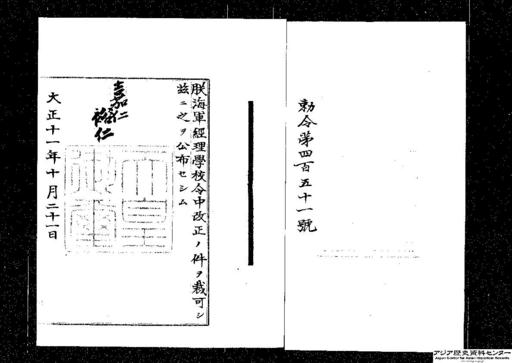 勅令第四百五十一號
朕海軍經理學校令中改正ノ件ヲ裁可シ
茲ニ之ヲ公布セシム
嘉仁
裕仁
大正十一年十月二十一日
アジア歴史資料センター
Japan Center for Asian Historical Records